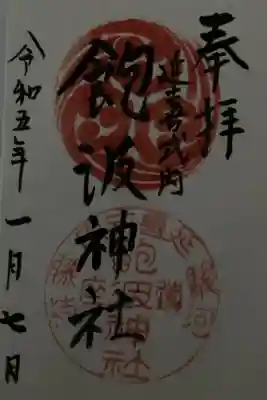 奉拝
延喜式内
飽波神社
令和五年一月七日
駿河
飽波神社